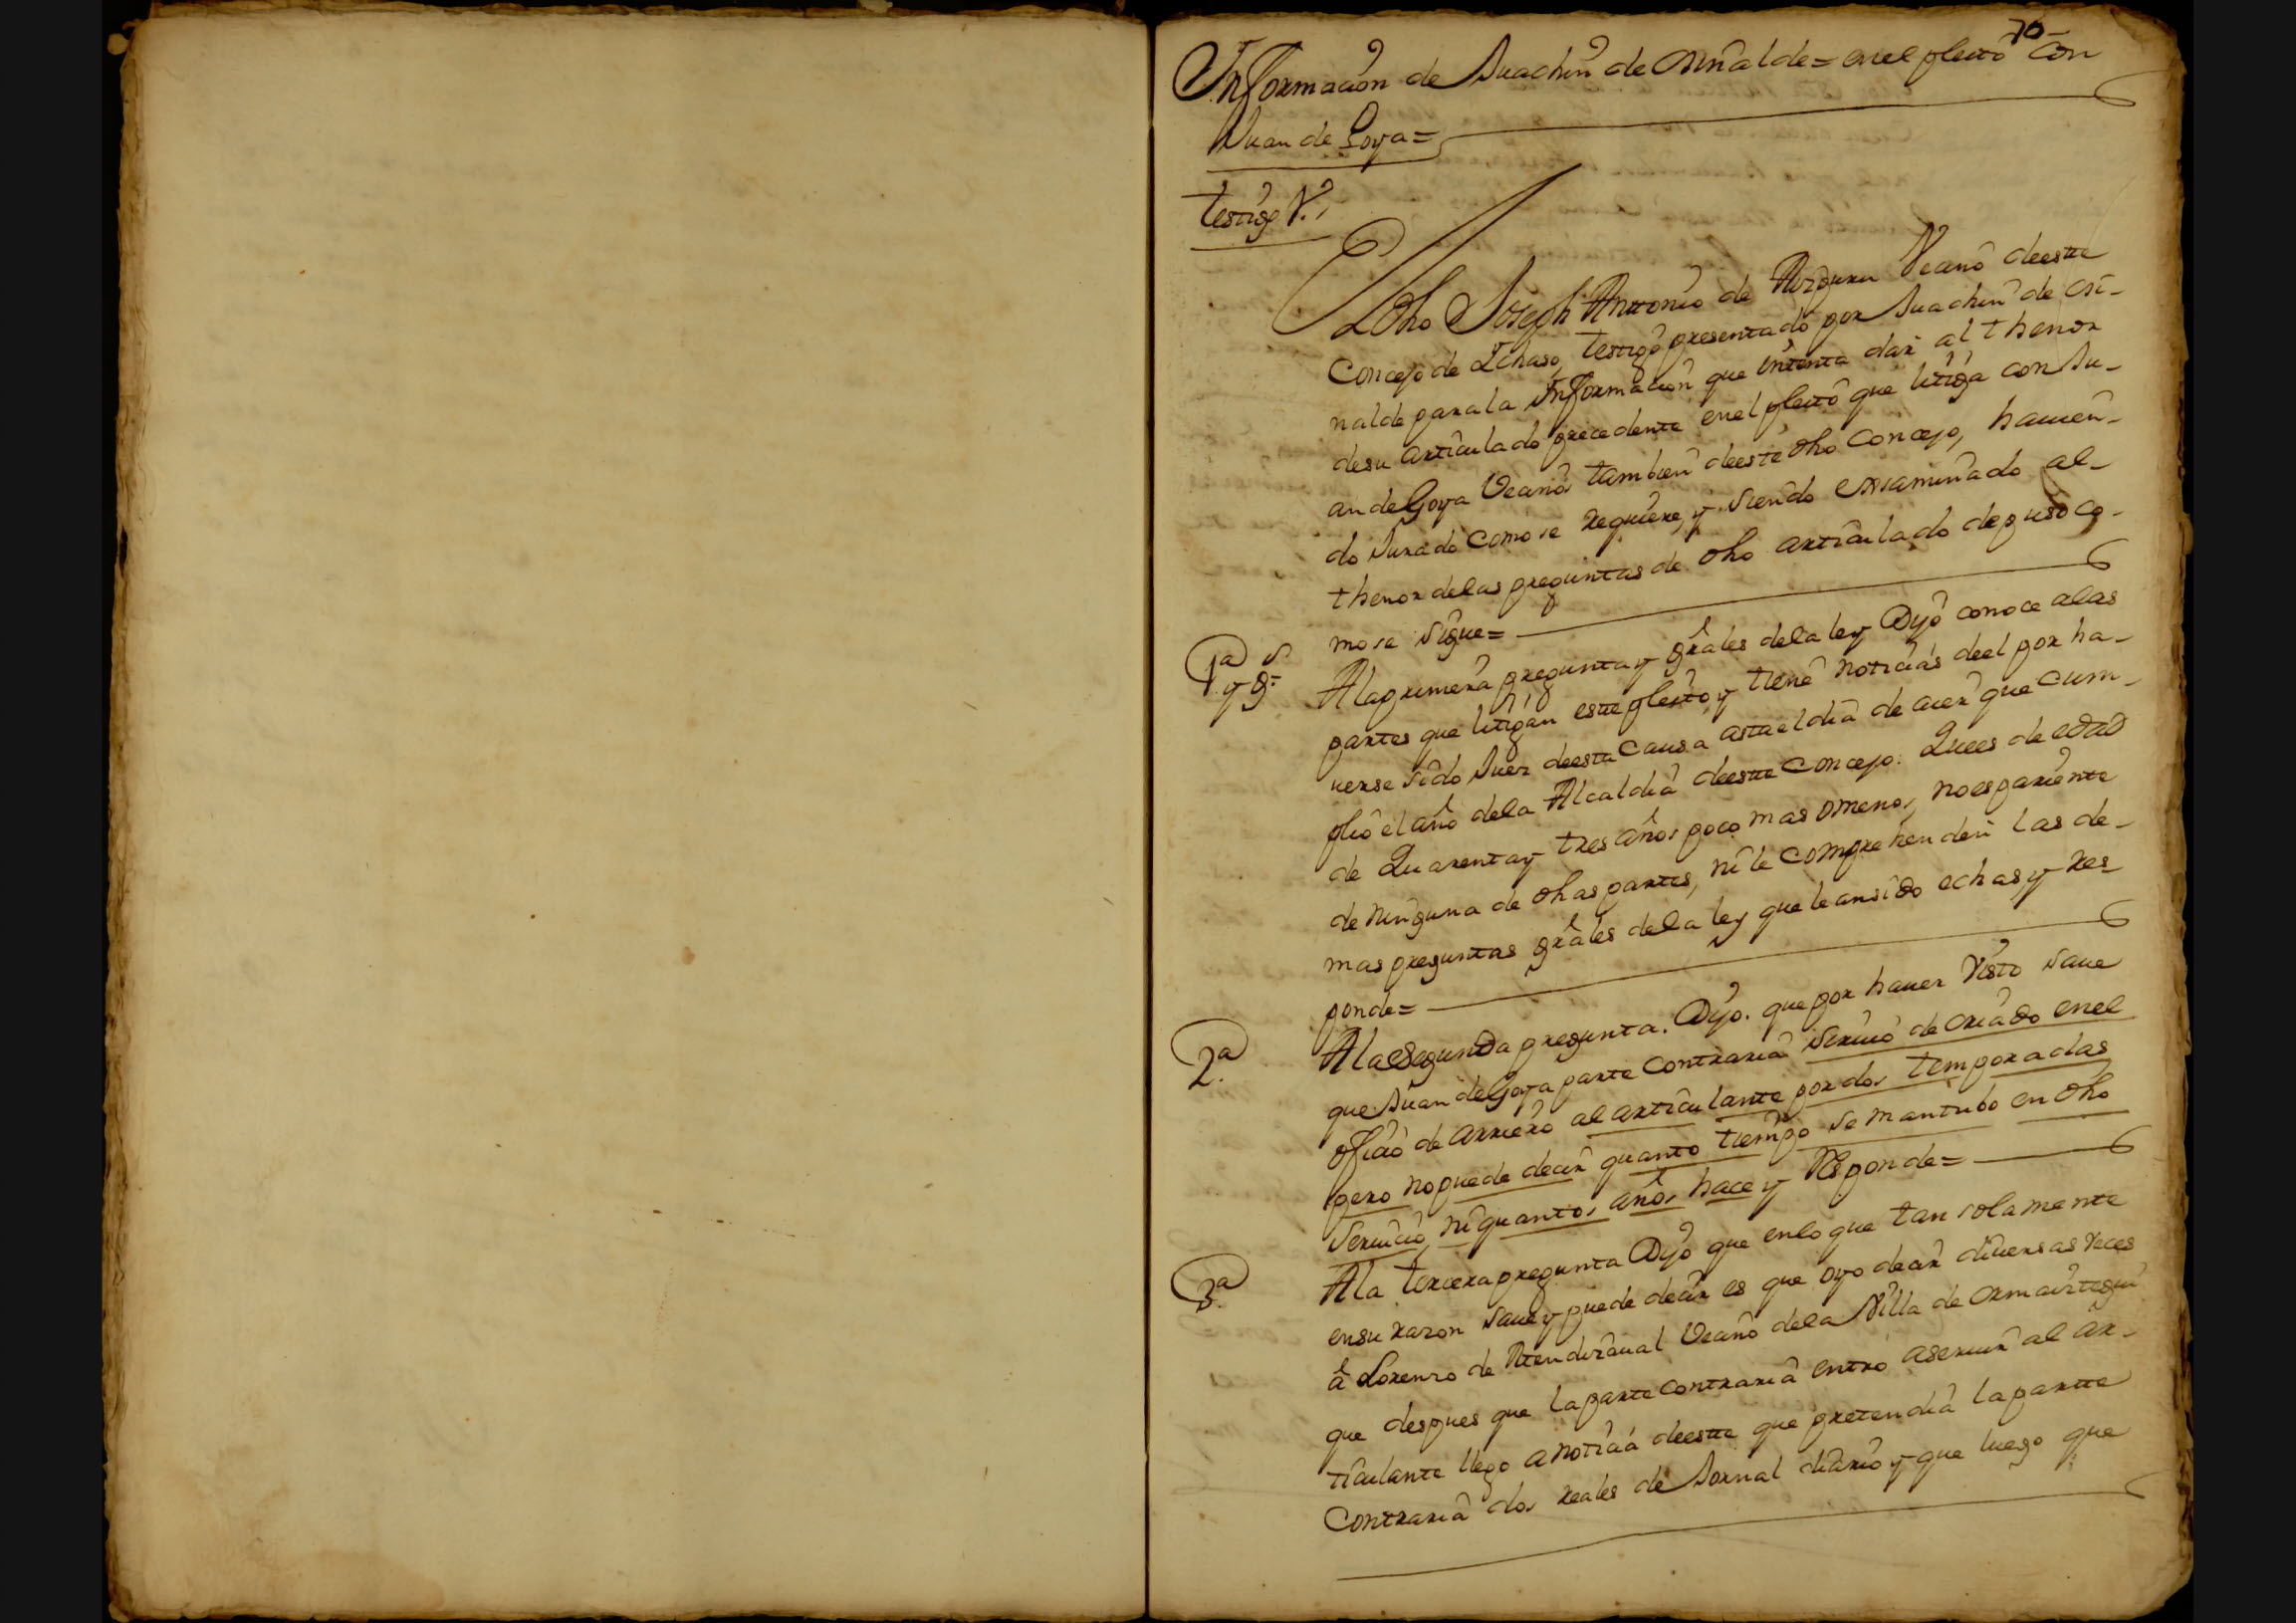 70
Informacion de Juachin de Osinalde= en el pleito con
Juan de Goya=
testigo 1.
El dho Joseph Antonio de Aizpuru Vecino deeste
Concejo de Ichaso, testigo presentado por Juachin de Osi-
nalde para la Informacion que intenta dar al thenor
desu articulado precedente enel pleito que litiga con Ju-
an de Goya Vecinos tambien deeste dho Concejo, hauien-
do Jurado como se requiere, y siendo exsaminado al
thenor delas preguntas de dho articulado depuso co-
mo se sigue=
1ª y gs
Ala primera pregunta y grâles dela ley Dijo conoce alas
partes que litigan este pleito, y tiene noticias deel por ha-
uerse sido Juez deesta Causa asta el dia de aier que cum-
plio el año dela Alcaldia deeste Concejo: Quees de edad
de Quarenta y tres años poco mas omenos, no es pariente
de ninguna de dhas partes, ni le comprehenden las de-
mas preguntas grâles dela ley que le an sido echas y res
ponde=
2ª
Ala Segunda pregunta. Dijo. que por hauer Visto saue
que Juan de Goya parte Contraria siruio de criado enel
oficio de arriero al articulante por dos temporadas
pero no puede decir quanto tiempo se mantubo en dho
seruicio, ni quantos años hace y Responde=
3ª
Ala tercera pregunta Dijo que enlo que tan solamente
ensu razon saue y puede decir es que oyo decir diuersas veces
â Lorenzo de Mendizaual Vecino dela Villa de Ormaiztegui
que despues que la parte contraria entro aseruir al ar-
ticulante llego a noticia deeste que pretendia la parte
Contraria dos reales de Jornal diario y que luego que